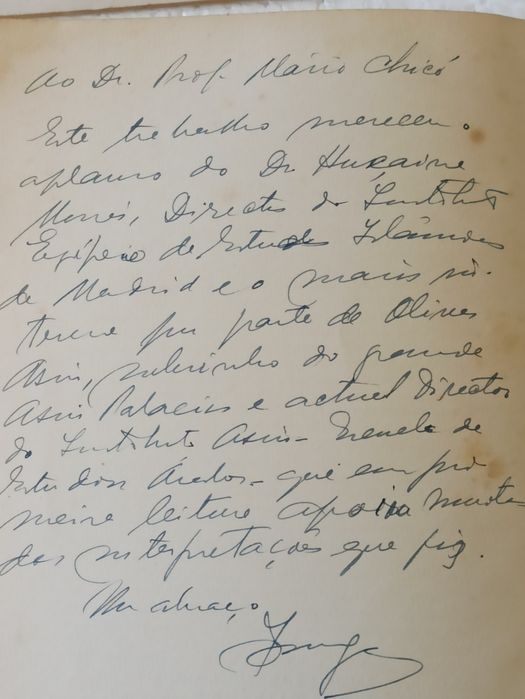 Ao Dr. Prof. Mário Chicó
Este trabalho mereceu o
aplauso do Dr Huçaine
Monés, Director do Instituto
Egípcio de Estudos Islâmicos
de Madrid e o mais in-
teresse por parte de Oliver
Asin, sobrinho do grande
Asin Palacios e actual Director
do Instituto Asin - Escuela de
Estudios Árabes - que em pri
meira leitura apoia muitas
das interpretações que fiz.
Um abraço